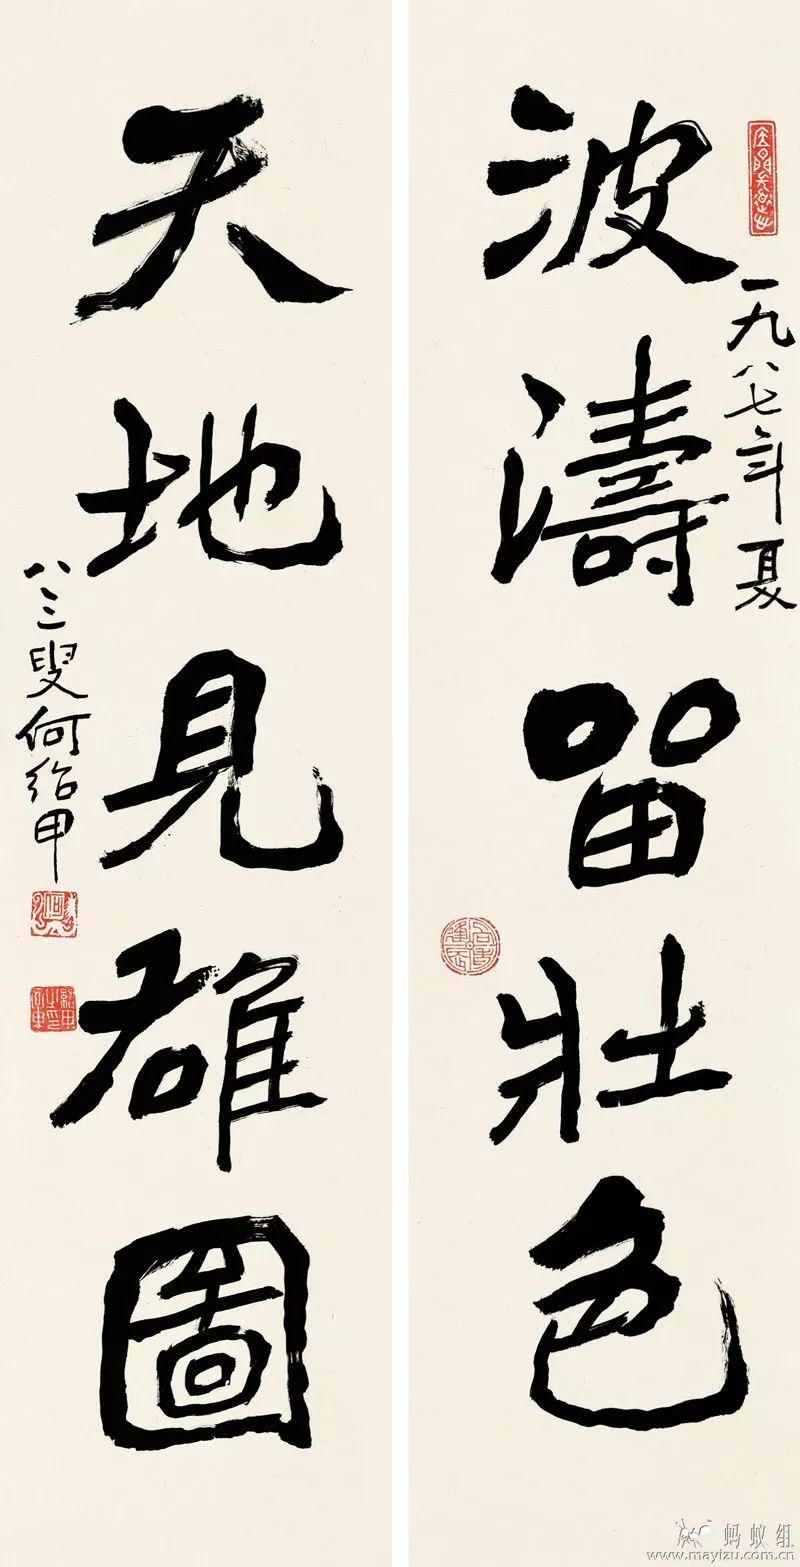 波濤留壯色
一九八七年夏
天地見雄圖
八三叟何紹甲
蚂蚁组
www.mayizu.com.cn